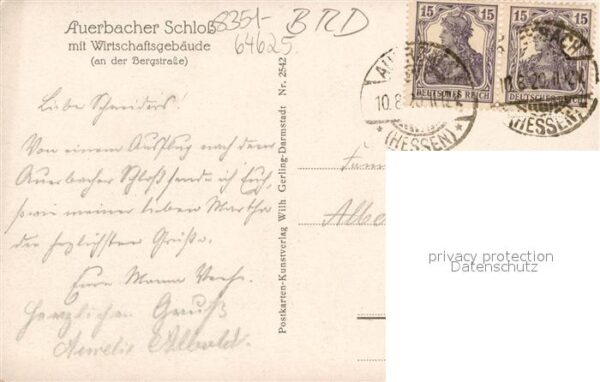 Auerbacher Schloß
mit Wirtschaftsgebäude
(an der Bergstraße)
8351- BRD
64625
15 15 15 15
DEUTSCHES REICH DEUTSCHES REICH
10.8.20
10.8.20
(HESSEN)
(HESSEN)
Liebe Schneiders!
Von einem Ausflug nach dem
Auerbacher Schloß sende ich Euch,
sowie meiner lieben Martha
die herzlichsten Grüße.
Eure
Herzlichen Gruß
Postkarten-Kunstverlag Wilh. Gerling-Darmstadt Nr. 2542
Fam
Albe
privacy protection
Datenschutz